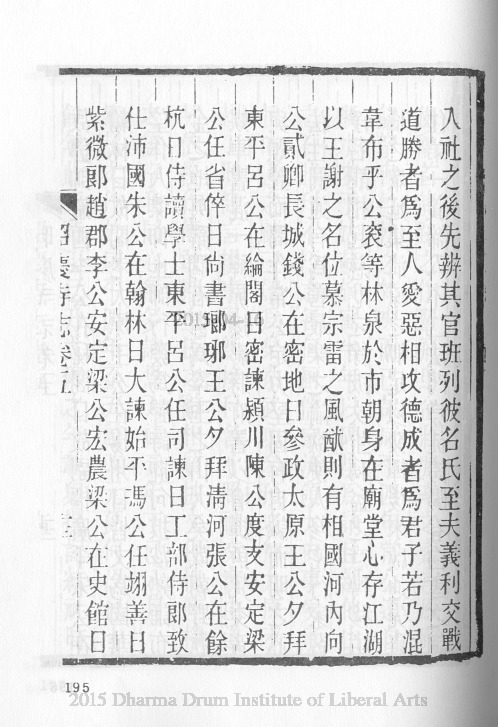 入社之後先辨其官班列彼名氏至夫義利交戰
道勝者爲至人愛惡相攻德成者爲君子若乃混
韋布乎公袞等林泉於市朝身在廟堂心存江湖
以王謝之名位慕宗雷之風猷則有相國河內向
公貳卿長城錢公在密地日參政太原王公夕拜
東平呂公在綸閣日密諫潁川陳公度支安定梁
公任省倅日尚書瑯琊王公夕拜清河張公在餘
杭日侍讀學士東平呂公任司諫日工部侍郎致
仕沛國朱公在翰林日大諫始平馮公任翊善日
紫微郎趙郡李公安定梁公宏農梁公在史館日
昭慶寺志卷五
195
2015 Dharma Drum Institute of Liberal Arts